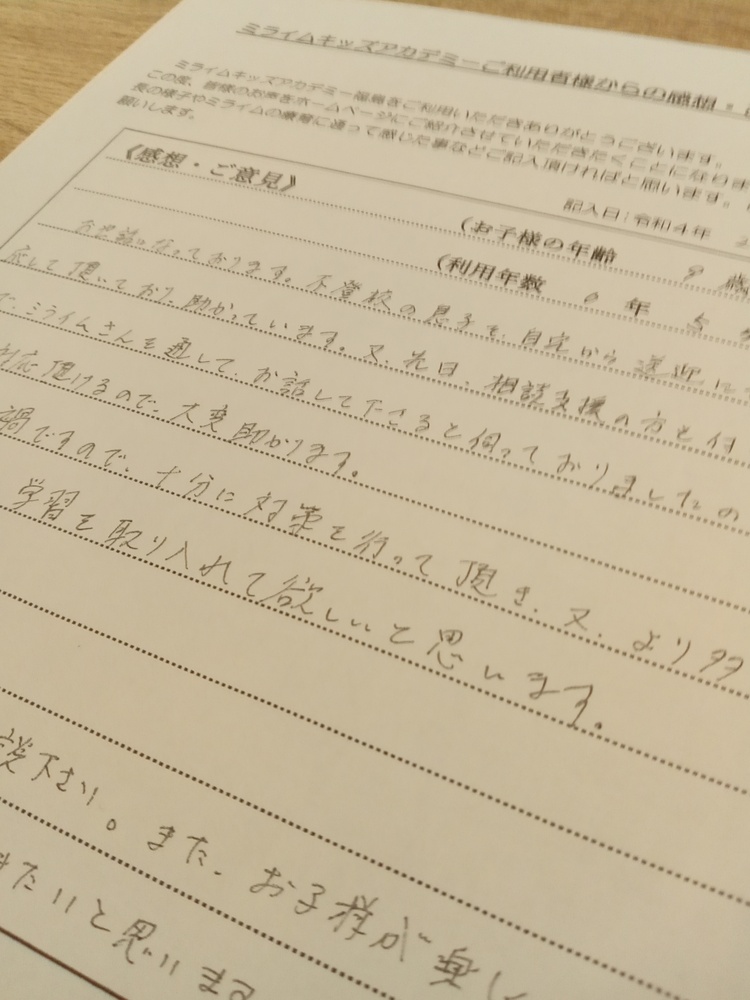 ミライムキッズアカデミーご利用者様からの感想・
ミライムキッズアカデミー福島をご利用いただきありがとうございます。
この度、皆様のお声をホームページにご紹介させていただきたくことになりま
長の様子やミライムの療育に通って感じた事などご記入頂ければと思います。
願いします。
記入日：令和4年
《感想・ご意見》
（お子様の年齢 9 歳
（利用年数 0 年 5
お世話になっております。不登校の息子を、自宅から送迎に
応して頂いており、助かっています。又、先日、相談支援の方と
で、ミライムさんを通して、お話して下さると伺っておりましたの
対応頂けるので、大変助かります。
禍ですので、十分に対策を行って頂き、又、より
学習を取り入れて欲しいと思います。
談下さい。また、お子様が楽し
きたいと思います